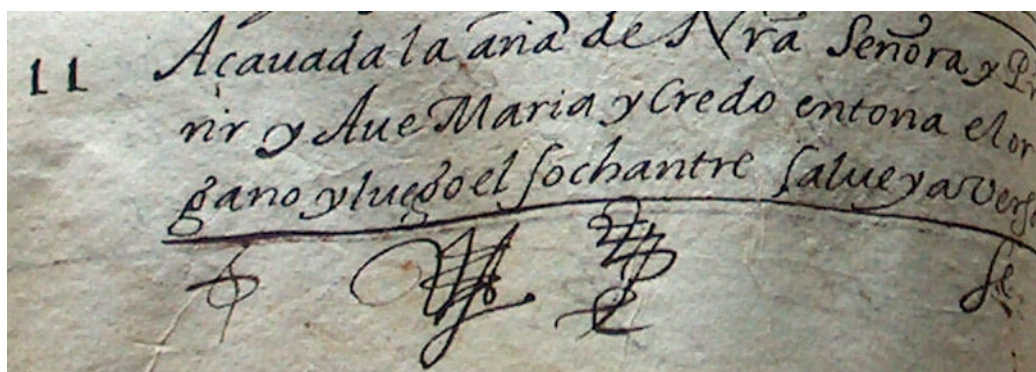 11 Acauada la aña de Nra Señora y
rir y Aue Maria y Credo entona el or
gano y luego el sochantre salue ya ver
se